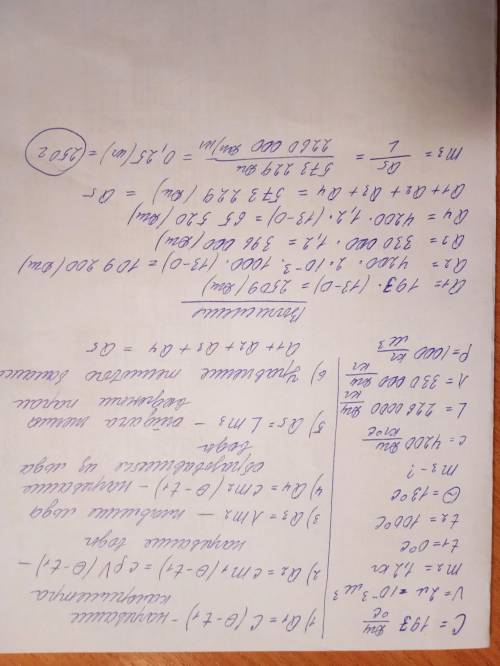 C = 193 Дж/°C
V = 2л = 10⁻³ м³
m₂ = 1,2 кг
t₁ = 0°C
t₂ = 100°C
Θ = 13°C
m₃ - ?
c = 4200 Дж/кг°C
L = 2260000 Дж/кг
λ = 330 000 Дж/кг
ρ = 1000 кг/м³
1) Q₁ = C(Θ - t₁) - нагревание
калориметра
2) Q₂ = cm₁(Θ - t₁) = cρV(Θ - t₁) -
нагревание воды
3) Q₃ = λm₂ — плавление льда
4) Q₄ = cm₂(Θ - t₁) - нагревание
образовавшейся из льда
воды
5) Q₅ = Lm₃ - отдача тепла
паром
6) Уравнение теплового баланса
Q₁ + Q₂ + Q₃ + Q₄ = Q₅
Вычисления
Q₁ = 193 · (13-0) = 2509 (Дж)
Q₂ = 4200 · 2 · 10⁻³ · 1000 · (13-0) = 109 200 (Дж)
Q₃ = 330 000 · 1,2 = 396 000 (Дж)
Q₄ = 4200 · 1,2 · (13-0) = 65 520 (Дж)
Q₁ + Q₂ + Q₃ + Q₄ = 573 229 (Дж) = Q₅
m₃ = Q₅/L = 573 229 Дж / 2260 000 Дж/кг = 0,25 (кг) = 250 г